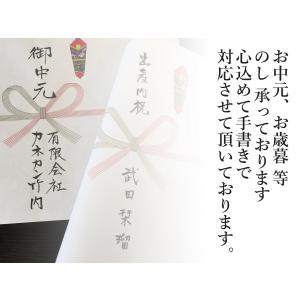 お中元、お歳暮 等
のし 承っております
心込めて手書きで
対応させて頂いております。
出産内祝
武田栞瑠
御中元
有限会社
カネカン竹内